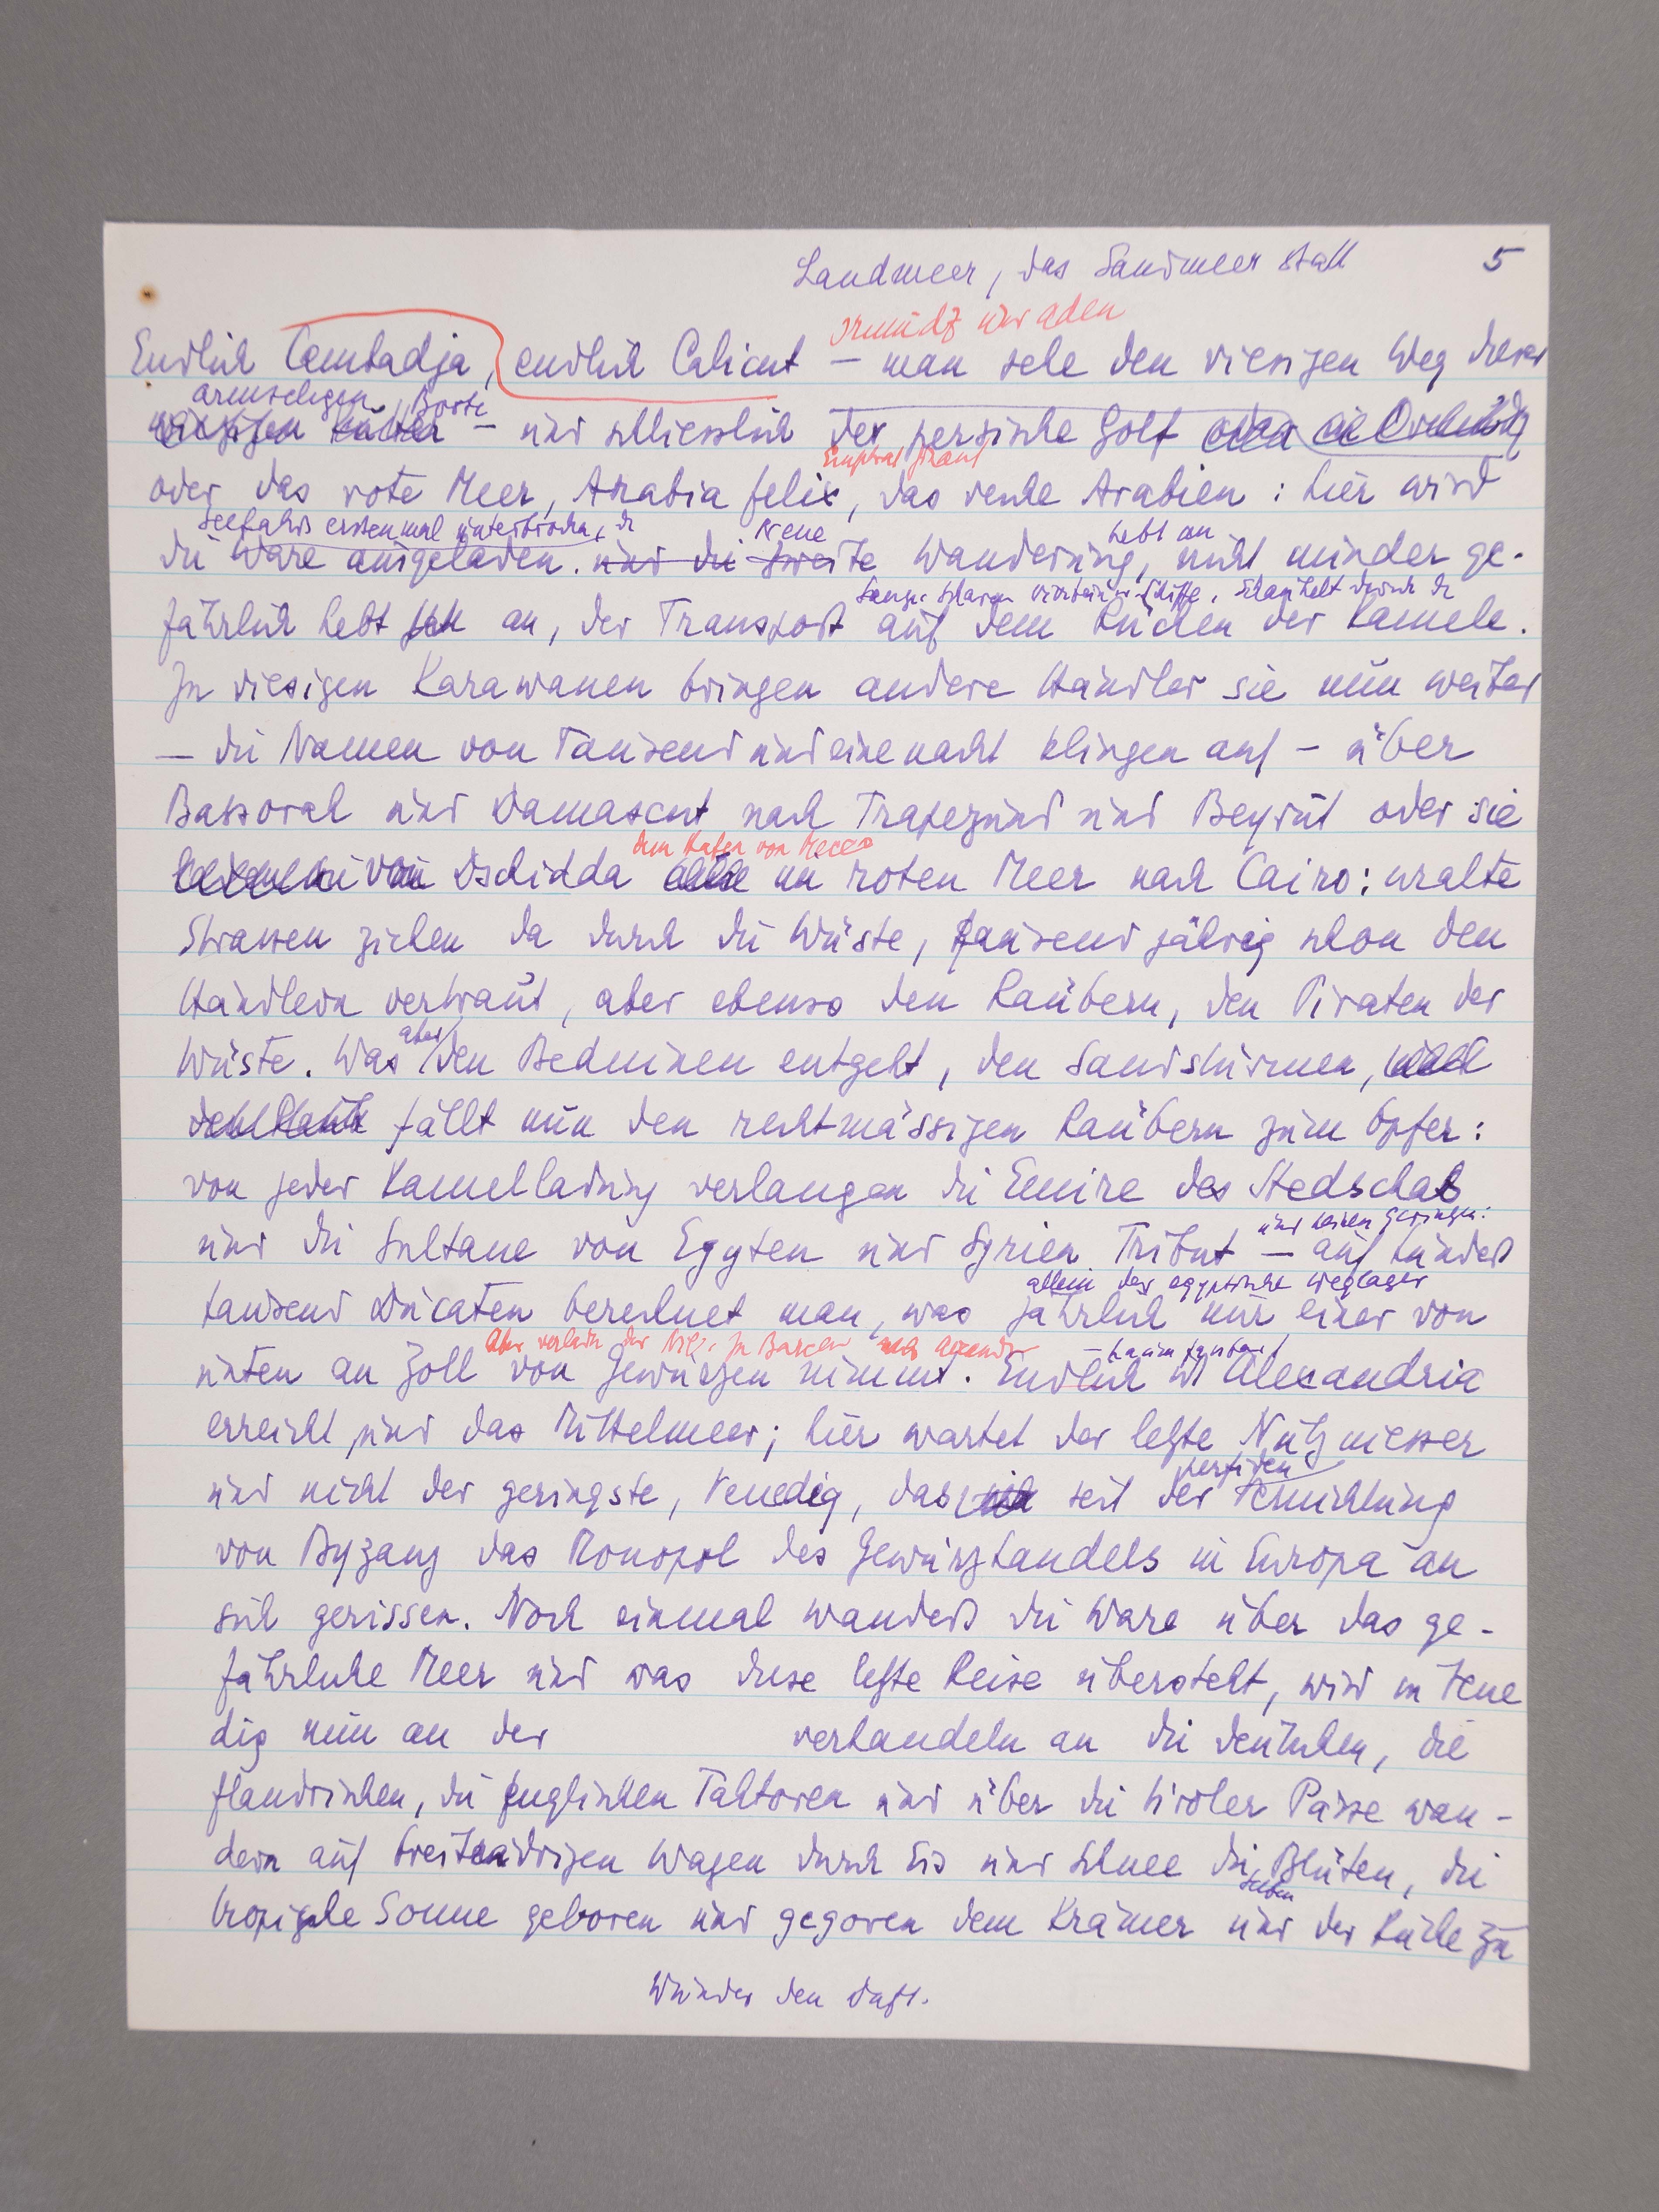 Landmeer, das Sandmeer statt
5
ormudz und aden
Endlich Cambadja, endlich Calicut – man sehe den riesigen Weg dieses
armseligen Boote
winzigen – und schliesslich der persische Golf oder
Empirat
oder das rote Meer, Arabia felix, das reiche Arabien : hier wird
Seefahrt erstenmal unterbrochen, d
Neue
hebt an
die Ware ausgeladen. und die zweite Wanderung, nicht minder ge-
Lange Scharen Schiffe, schaukelt durch d
fährlich hebt an, der Transport auf dem Rücken der Kamele.
In riesigen Karawanen bringen andere Händler sie nun weiter
– die Namen von Tausend und eine nacht klingen auf – über
Bassorah und Damascus nach Trapezund und Beyrut oder sie
dem Hafen von Mecca
Dschidda im roten Meer nach Cairo: uralte
Strassen ziehen da durch die Wüste, tausendjährig schon den
Händlern vertraut, aber ebenso den Räubern, den Piraten der
aber
Wüste. Was den Beduinen entgeht, den Sandstürmen,
fällt nun den rechtmässigen Räubern zum Opfer:
von jeder Kamelladung verlangen die Emire des Hedschas
und keinen geringen:
und die Sultane von Egypten und Syrien Tribut – auf hundert
allein der egyptische Weglager
tausend Ducaten berechnet man, was jährlich nur einer von
In Barken nach
ihnen an Zoll von Gewürzen nimmt. Endlich ist Alexandria
erreicht und das Mittelmeer; hier wartet der letzte Nutzniesser
perfiden
und nicht der geringste, Venedig, das seit der Vernichtung
von Byzanz das Monopol des Gewürzhandels in Europa an
sich gerissen. Noch einmal wandert die Ware über das ge-
fährliche Meer und was diese letzte Reise übersteht, wird in Vene
dig nun an der verhandeln an die deutschen, die
flandrischen, die englischen Faktoren und über die tiroler Pässe wan-
dern auf breiträdrigen Wagen durch Eis und Schnee die Blüten, die
selben
tropische Sonne geboren und gegoren dem Krämer und der Küche zu
Wunder den Duft.